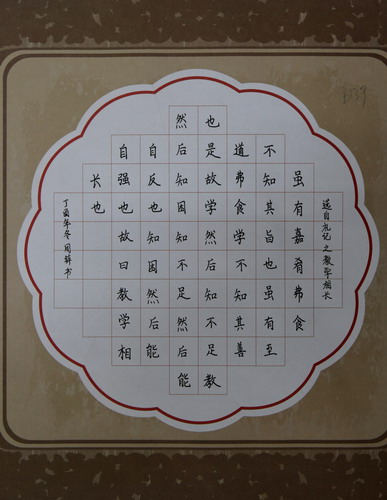 选自礼记之教学相长
虽有嘉肴弗食
不知其旨也虽有至
道弗食学不知其善
也是故学然后知不足教
然后知困知不足然后能
自反也知困然后能
自强也故曰教学相
长也
丁酉年冬周辉书